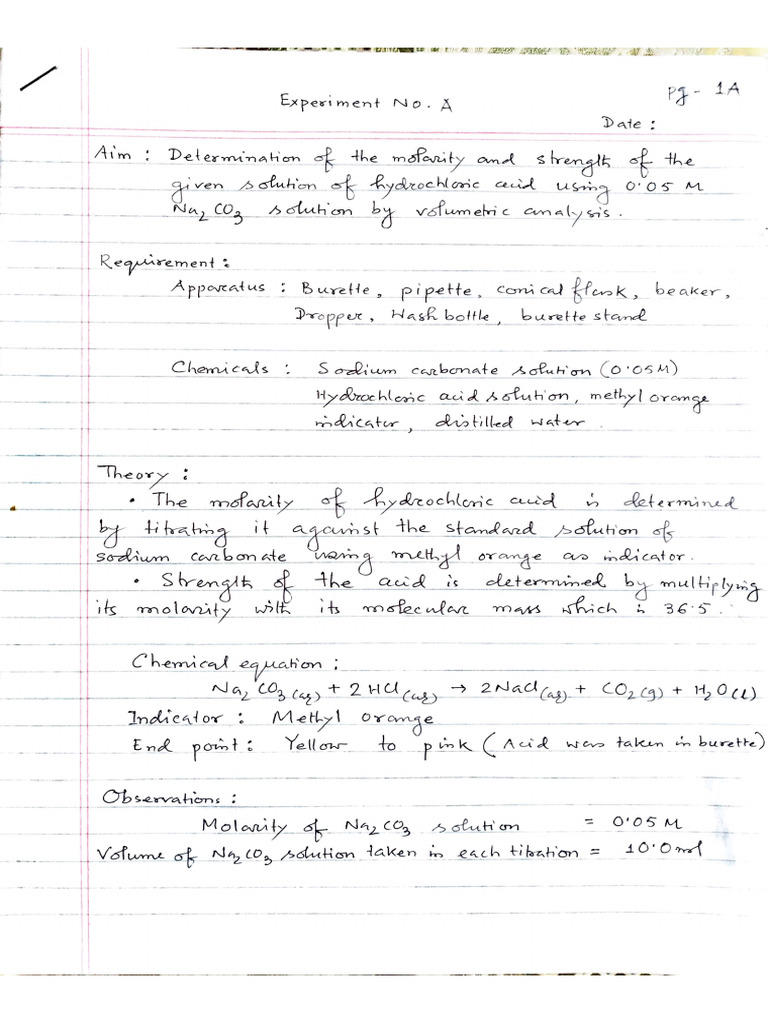 pg- 1A
Experiment No. A
Date :
Aim : Determination of the molarity and strength of the
given solution of hydrochloric acid using 0.05 M
Na2CO3 solution by volumetric analysis.
Requirement :
Apparatus : Burette, pipette, conical flask, beaker,
Dropper, Wash bottle, burette stand
Chemicals : Sodium carbonate solution (0.05M)
Hydrochloric acid solution, methyl orange
indicator, distilled water.
Theory :
• The molarity of hydrochloric acid is determined
by titrating it against the standard solution of
sodium carbonate using methyl orange as indicator.
• Strength of the acid is determined by multiplying
its molarity with its molecular mass which is 36.5.
Chemical equation :
Na2CO3(aq) + 2HCl(aq) → 2NaCl(aq) + CO2(g) + H2O(l)
Indicator : Methyl orange
End point : Yellow to pink (Acid was taken in burette)
Observations :
Molarity of Na2CO3 solution = 0.05 M
Volume of Na2CO3 solution taken in each titration = 10.0 ml